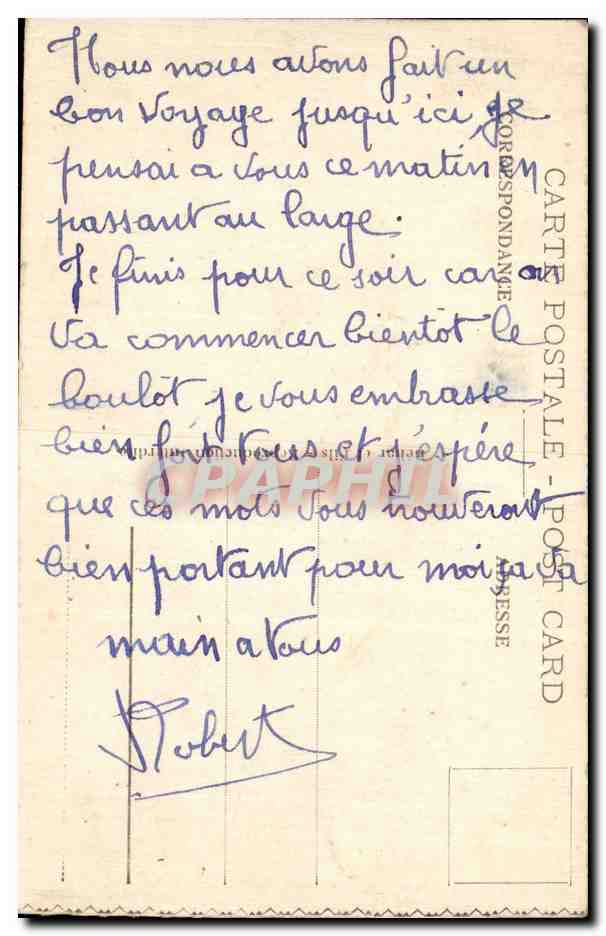 Nous nous avons fait un
bon voyage jusqu'ici Je
pensai a vous ce matin en
passant au large.
Je finis pour ce soir car on
va commencer bientot le
boulot je vous embrasse
bien fort tous et j'espére
que ces mots vous trouveront
bien portant pour moi ca va
main a vous
Robert
CARTE POSTALE - POST CARD
CORRESPONDANCE
ADRESSE
CPAPHIL